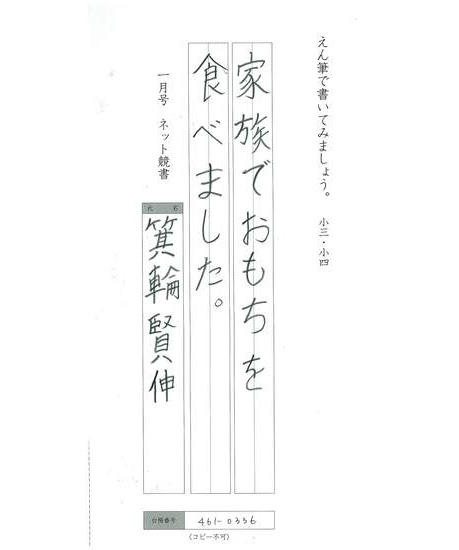 えん筆で書いてみましょう。 小三・小四
家族でおもちを
食べました。
一月号 ネット競書
氏名
箕輪賢伸
合格番号 461-0336
(コピー不可)